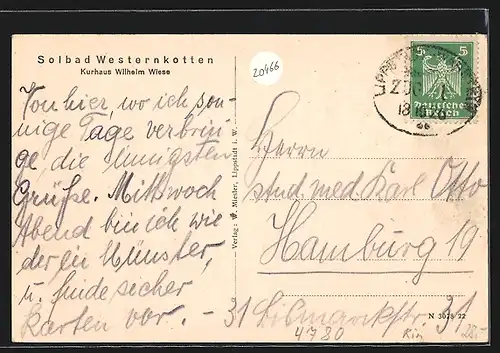 Solbad Westernkotten
Kurhaus Wilhelm Wiese
Von hier, wo ich son-
nige Tage verbrin-
ge, die innigsten
Grüße. Mittwoch
Abend bin ich wie
der in Münster,
u. finde sicher
Karten vor. -
Verlag: W. Miesler, Lippstadt i. W.
5 5
Deutsches
Reich
ZUG
18.10.
Herrn
stud. med. Karl Otto
Hamburg 19
31 Bismarckstr. 31
N 3028 22
4780
20466